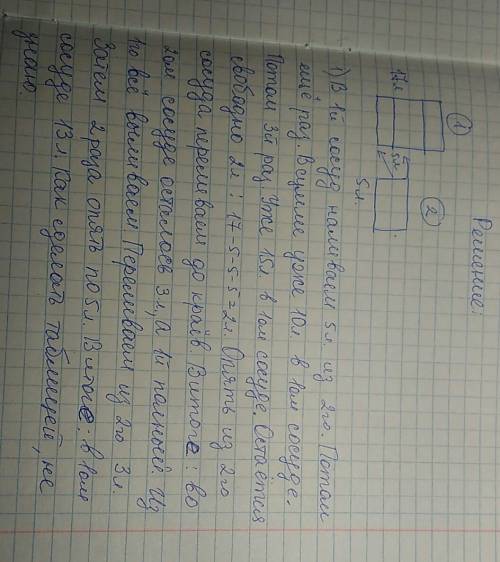 Решение:
① ②
17л 5л 5л.
1) В 1й сосуд наливаем 5л. из 2го. Потом
ещё раз. В сумме уже 10л в 1ом сосуде.
Потом 3й раз. Уже 15л в 1ом сосуде. Остаётся
свободно 2л : 17-5-5-5=2л. Опять из 2го
сосуда переливаем до краёв. В итоге : во
2ом сосуде осталось 3л, а 1й полный. Из
1го всё выливаем. Переливаем из 2го 3л.
Затем 2 раза опять по 5л. В итоге: в 1ом
сосуде 13л. Как сделать таблицей, не
знаю.